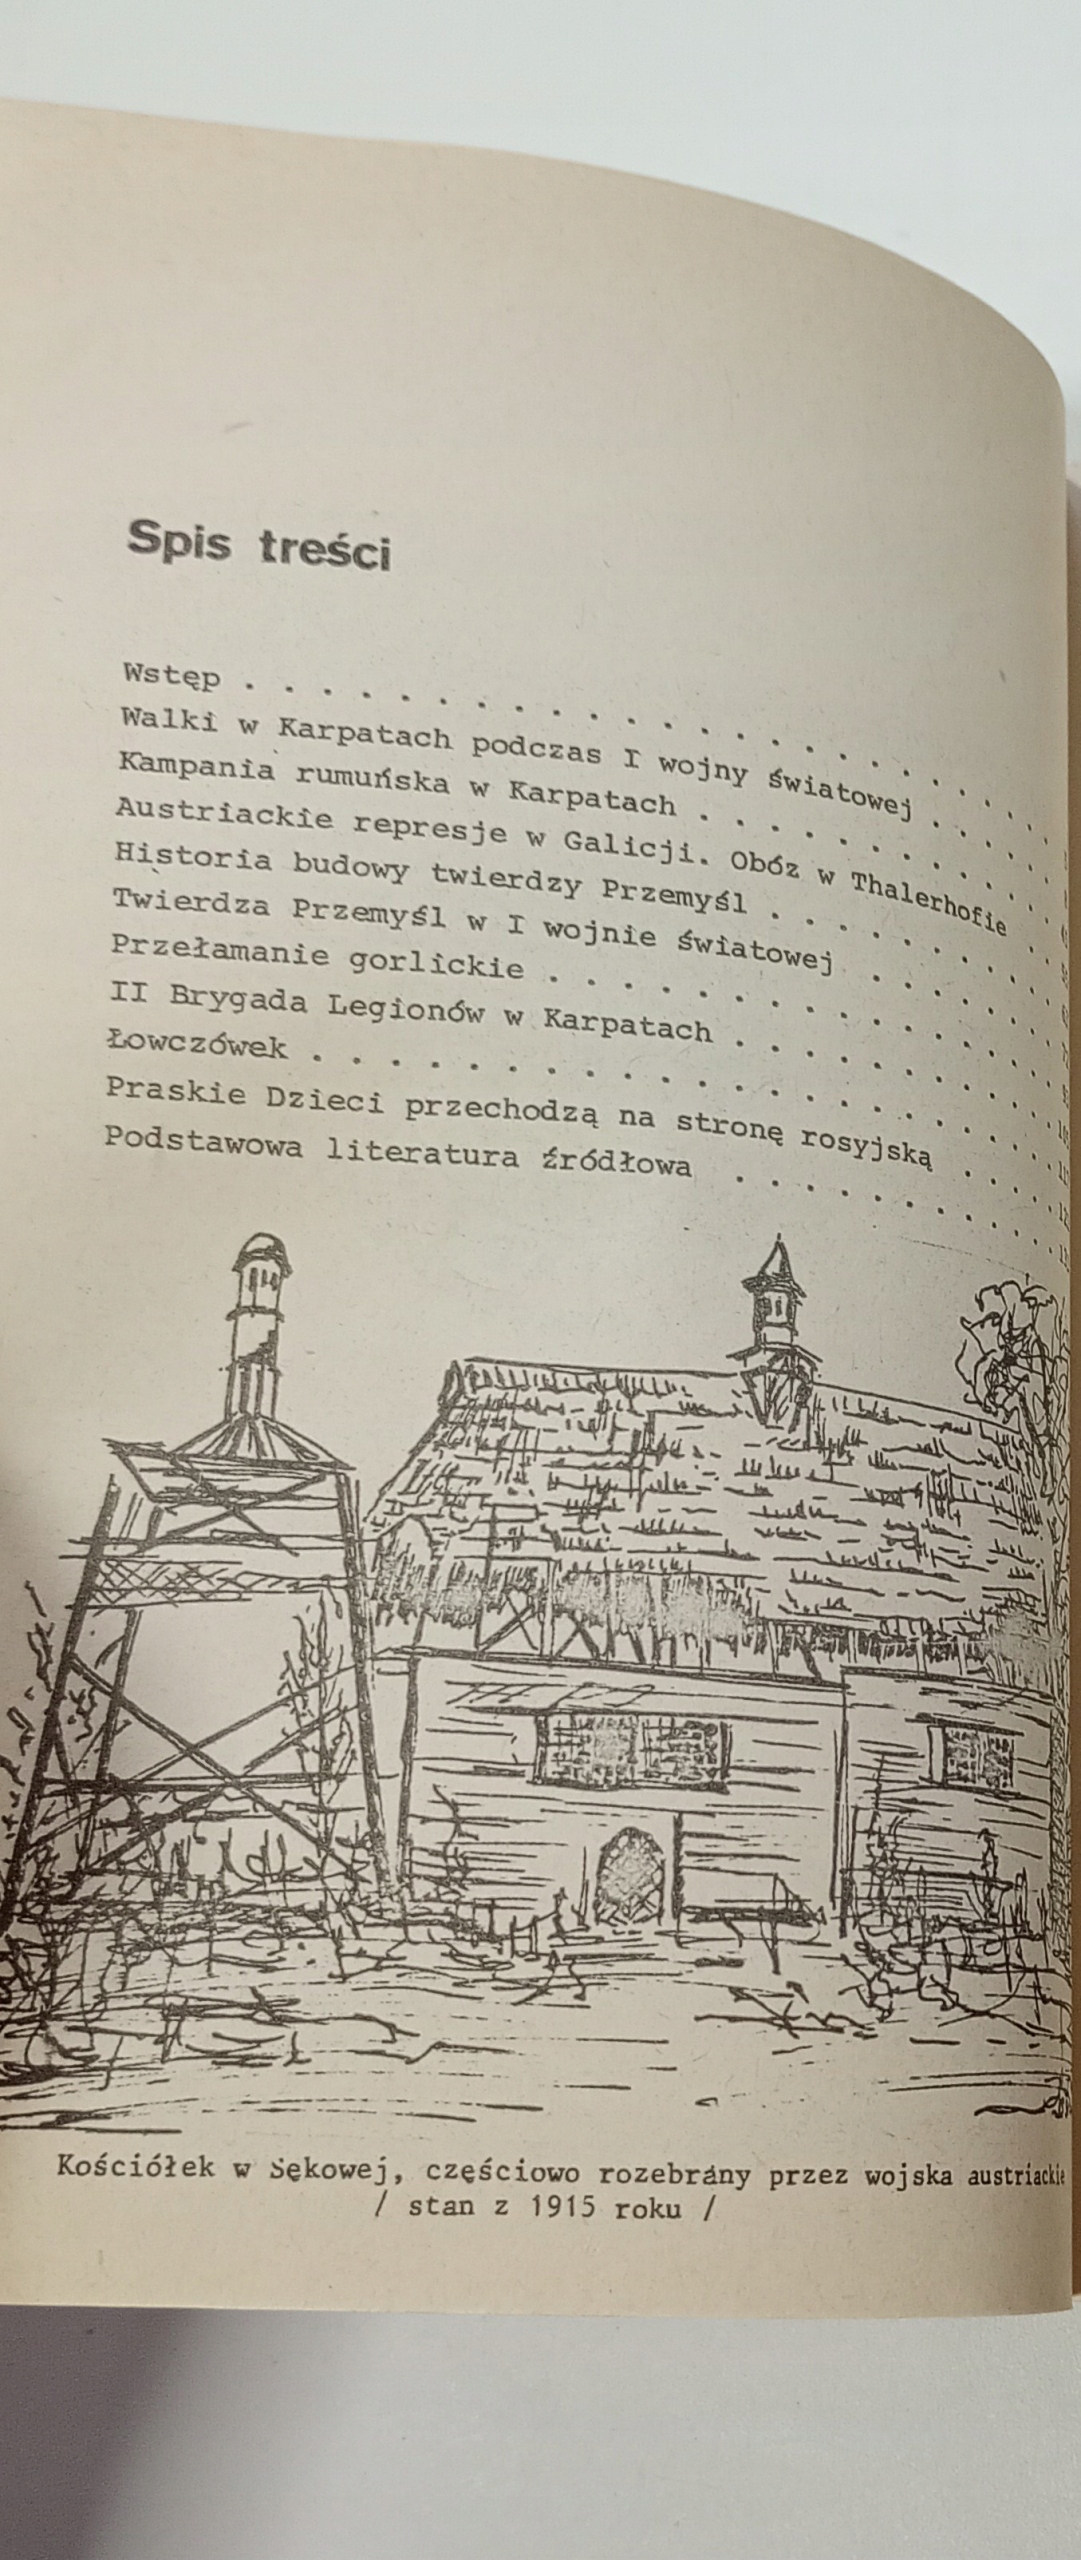 Spis treści
Wstęp . . . . . . . . . . . . . . . . . . . . .
Walki w Karpatach podczas I wojny światowej . . . .
Kampania rumuńska w Karpatach . . . . . . . . . .
Austriackie represje w Galicji. Obóz w Thalerhofie .
Historia budowy twierdzy Przemyśl . . . . . . . .
Twierdza Przemyśl w I wojnie światowej . . . . .
Przełamanie gorlickie . . . . . . . . . . . . . .
II Brygada Legionów w Karpatach . . . . . . . . .
Łowczówek . . . . . . . . . . . . . . . . . . . .
Praskie Dzieci przechodzą na stronę rosyjską . . . .
Podstawowa literatura źródłowa . . . . . . . . . .
Kościółek w Sękowej, częściowo rozebrany przez wojska austriackie
/ stan z 1915 roku /